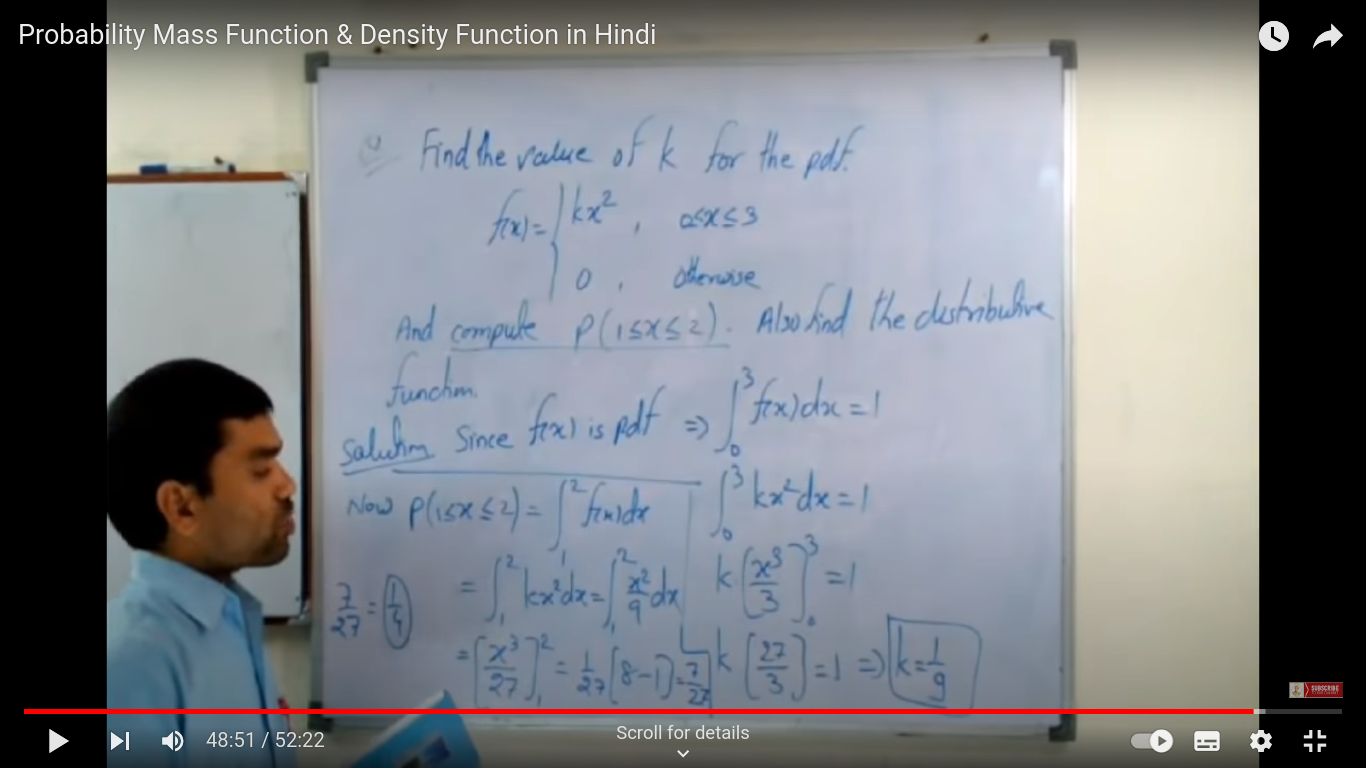 Probability Mass Function & Density Function in Hindi
Find the value of k for the pdf.
f(x) = { kx², 0≤x≤3
0, otherwise
And compute P(1≤x≤2). Also find the distributive
function.
Solution Since f(x) is pdf ⇒ ∫₀³ f(x)dx = 1
∫₀³ kx²dx = 1
k [x³/3]₀³ = 1
k [27/3] = 1 ⇒ k = 1/9
Now P(1≤x≤2) = ∫₁² f(x)dx
= ∫₁² kx²dx = ∫₁² x²/9 dx
= [x³/27]₁² = 1/27 [8-1] = 7/27
7/27 = 1/4
SUBSCRIBE
48:51 / 52:22
Scroll for details